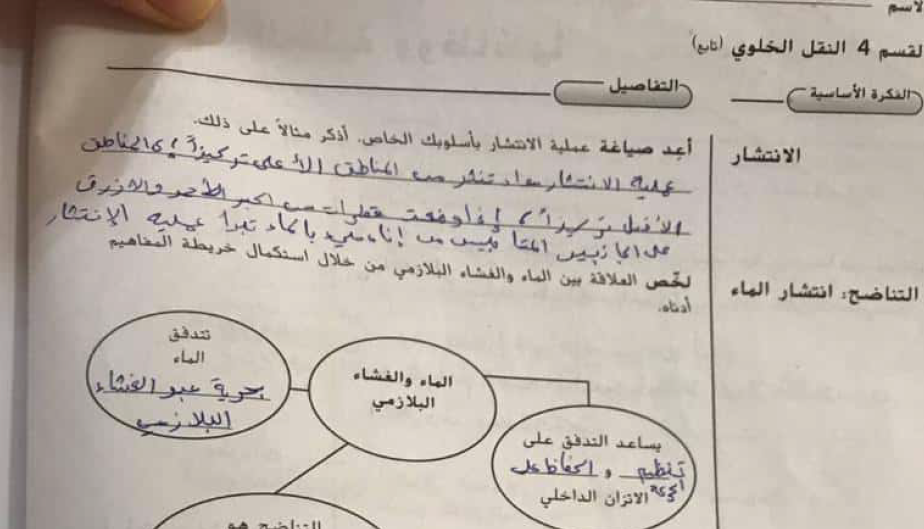 لاسم
لقسم 4 النقل الخلوي (تابع)
الفكرة الأساسية
التفاصيل
الانتشار
أعد صياغة عملية الانتشار بأسلوبك الخاص. أذكر مثالاً على ذلك.
عملية الانتشار مواد تنتشر من المناطق الأعلى تركيزاً إلى المناطق
الأقل تركيزاً، إذا وضعت قطرات من الحبر الأحمر والأزرق
على الجانبين المتقابليين من إناء مليء بالماء تبدأ عملية الإنتشار
التناضح: انتشار الماء
لخّص العلاقة بين الماء والغشاء البلازمي من خلال استكمال خريطة المفاهيم
أدناه.
تتدفق
الماء
بحرية عبر الغشاء
البلازمي
الماء والغشاء
البلازمي
يساعد التدفق على
تنظيم و الحفاظ على
الاتزان الداخلي
التناضح هو